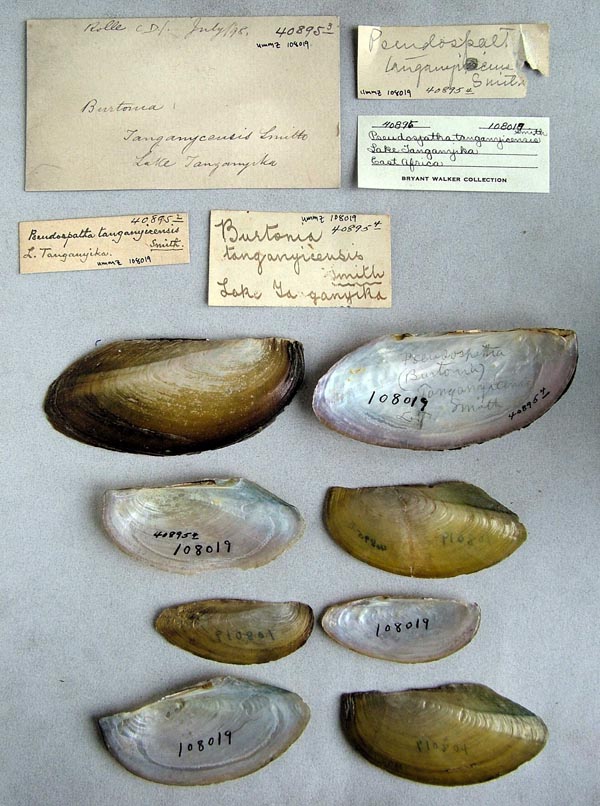 Rolle C.D/. July/98. 40895 3
ummz 108019.
Burtonia
Tanganycensis Smith
Lake Tanganyika
Pseudospat
tanganyicense
Smith
ummz 108019 40895 4
40895 108019
Pseudospatha tanganyicensis Smith
Lake Tanganyika
East Africa
BRYANT WALKER COLLECTION
40895 2
Pseudospatha tanganyicensis
Smith.
L. Tanganyika.
ummz 108019
ummz 108019
Burtonia 40895 4
tanganyicensis
Smith
Lake Ta ganyika
Pseudospatha
(Burtonia)
Tanganyicensis
Smith
108019
40895 4
40895 2
108019
108019
108019
108019
108019
108019